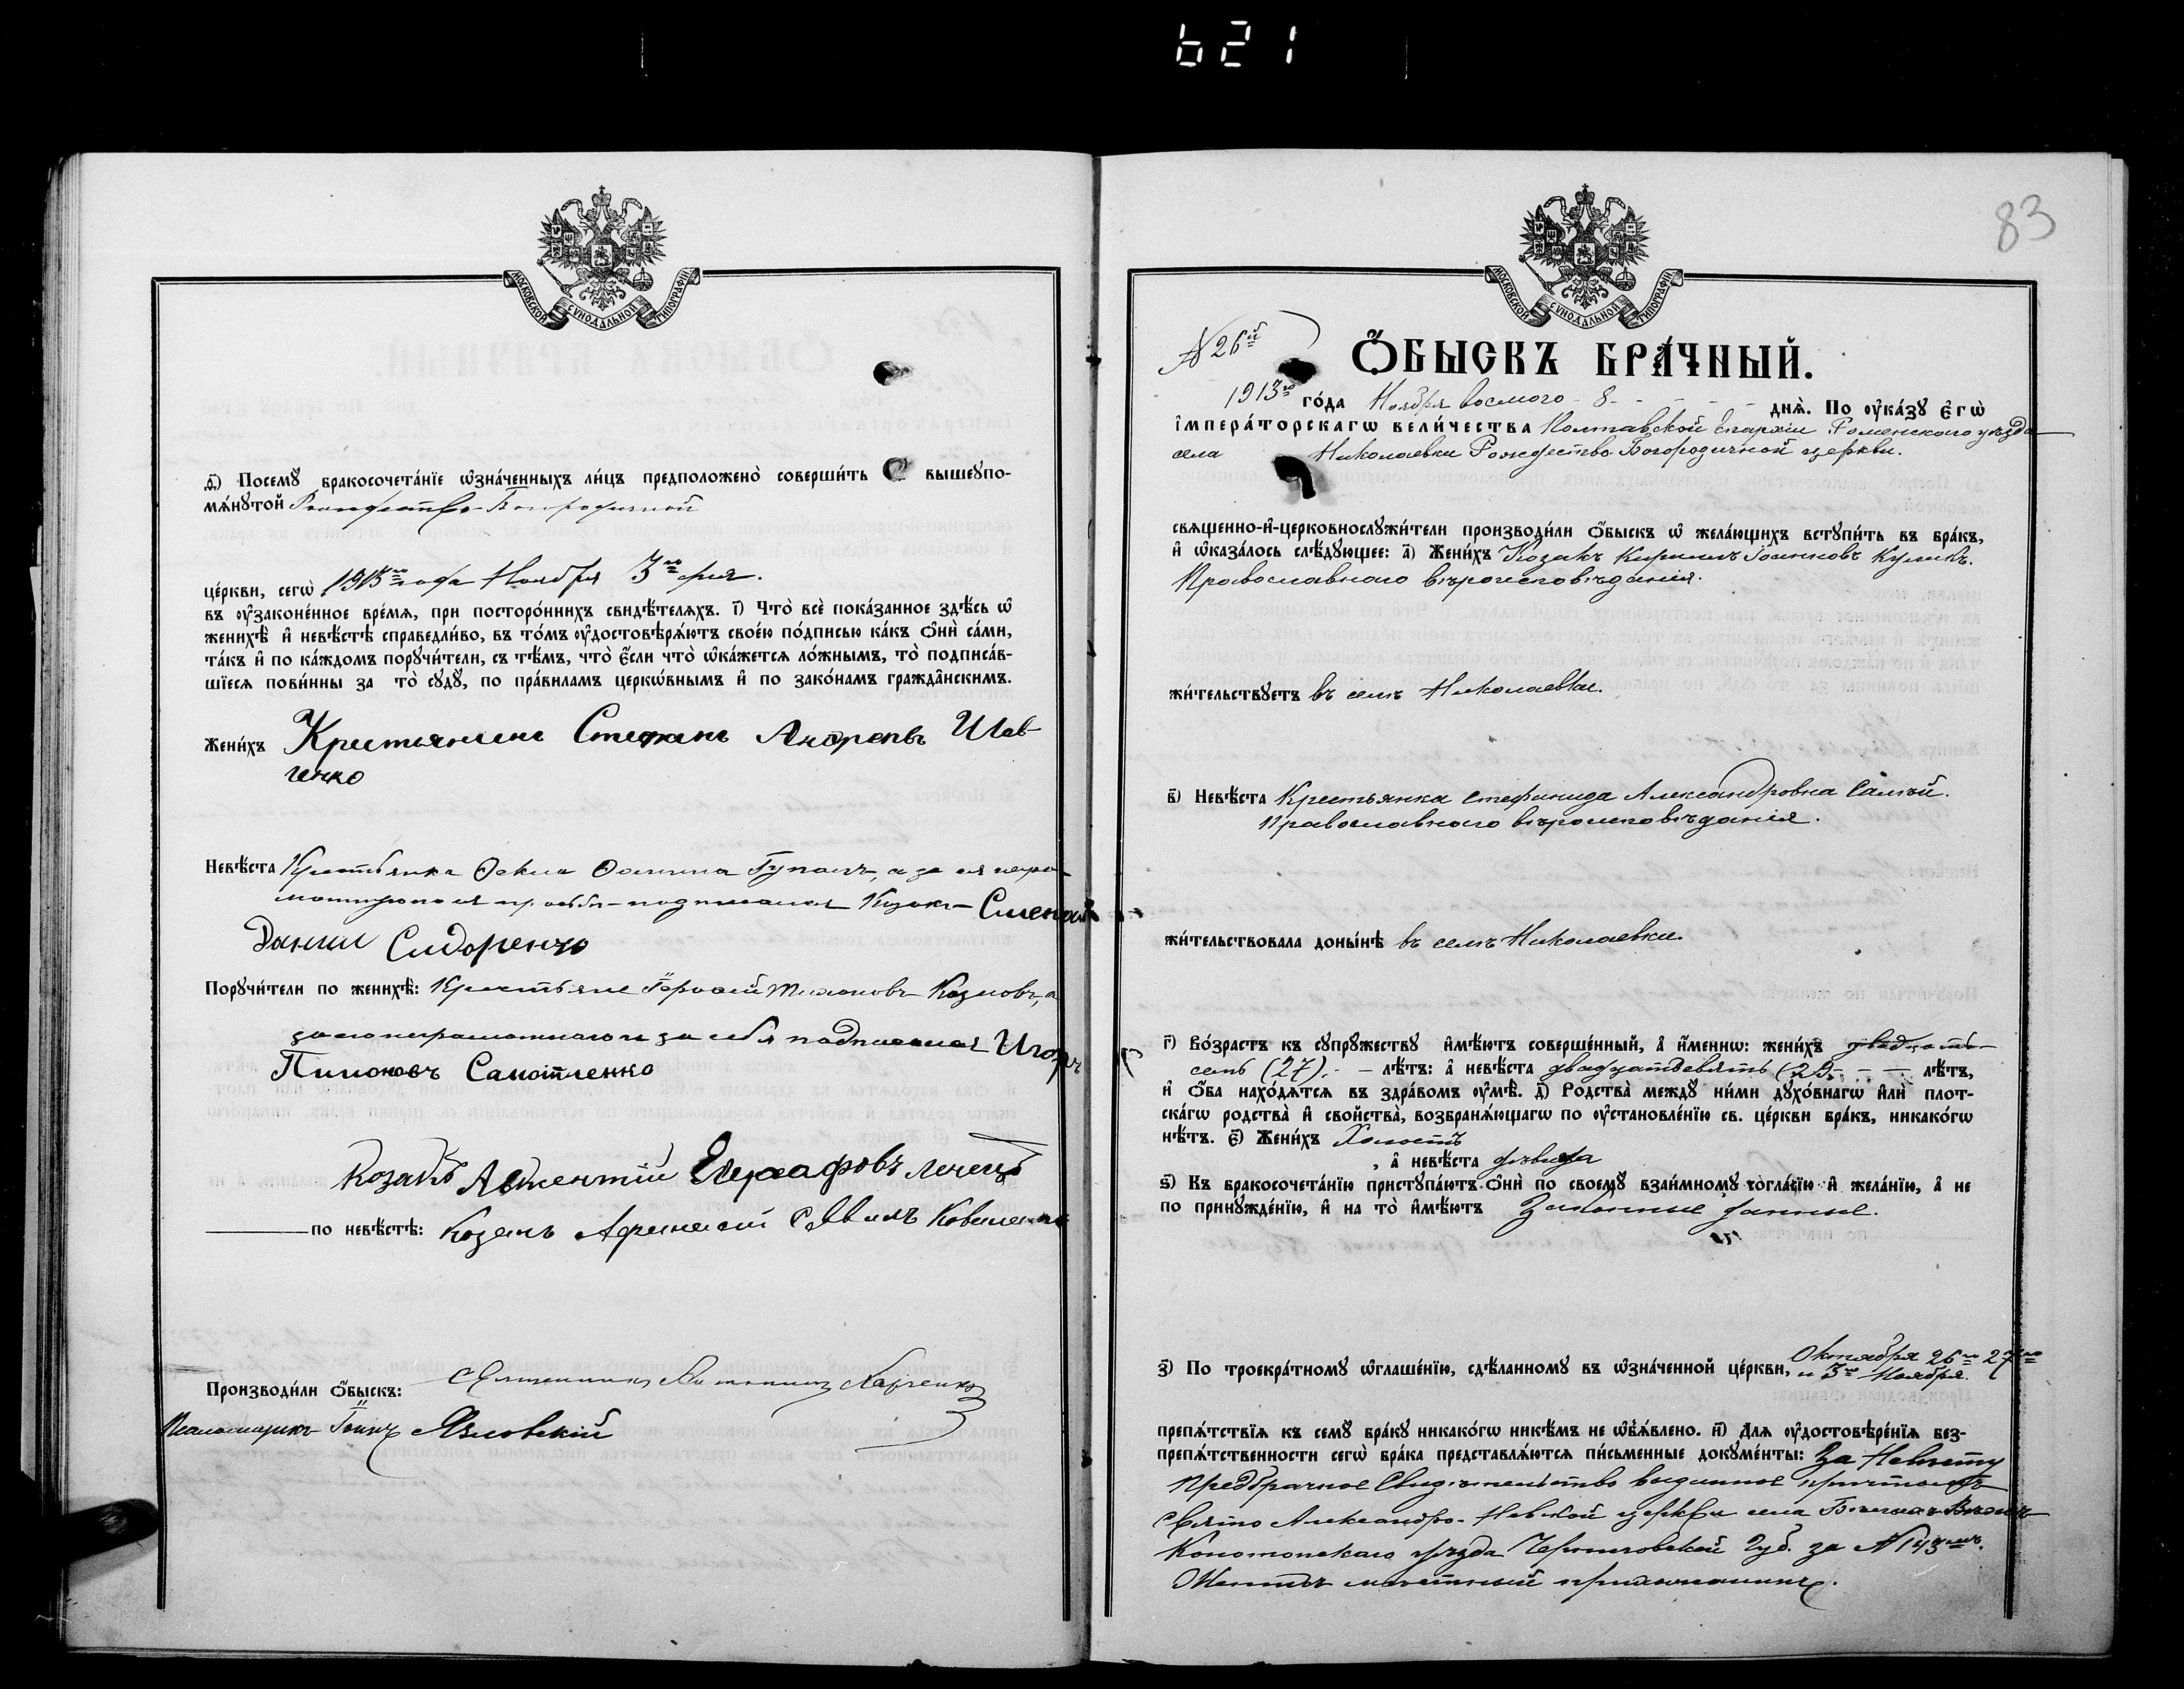 621
МОСКОВСКОЙ СѴНОДАЛЬНОЙ ТИПОГРАФІИ
д҃і) Посемꙋ бракосочета́нїе ѡ҆зна́ченныхъ ли́цъ предположено̀ соверши́ть въ вышеꙋпо-
мѧ́нꙋтой Рождество-Богородичной
це́ркви, сегѡ̀ 1913го года Ноября 3го дня.
въ ᲂу҆законе́нное вре́мѧ, при посторо́ннихъ свидѣ́телѧхъ. і҃) Что̀ всѐ пока́занное здѣ́сь ѡ҆
женихѣ̀ и҆ невѣ́стѣ справедли́во, въ то́мъ ᲂу҆достовѣрѧ́ютъ свое́ю по́дписью ка́къ ѻ҆нѝ са́ми,
та́къ и҆ по ка́ждомъ порꙋчи́тели, съ тѣ́мъ, что̀ є҆́сли что̀ ѡ҆ка́жетсѧ ло́жнымъ, то̀ подписа́в-
шїесѧ пови́нны за то̀ сꙋдꙋ̀, по пра́виламъ церкѡ́внымъ и҆ по зако́намъ гражда̂нскимъ.
Жени́хъ Крестьянинъ Стефанъ Андреевъ Шев-
ченко
Невѣ́ста Крестьянка Ѳекла Ѳомина Гупалъ, а за ея негра-
мотную по ея просьбѣ подписался Козакъ
Данiил Сидоренко
Порꙋчи́тели по женихѣ̀: Крестьяне Козловъ, а
за него неграмотнаго и за себя подписался Игоръ
Пимоновъ Самотченко
Козакъ Авксентій Лечець
по невѣ́стѣ: Козакъ Афанасій Саввинъ
Производи́ли ѻ҆́быскъ: Священникъ Харченко
Псаломщикъ Іоаннъ Яновскій
83
МОСКОВСКОЙ СѴНОДАЛЬНОЙ ТИПОГРАФІИ
№ 26й
Ѻ҆́БЫСКЪ БРА́ЧНЫЙ.
1913го го́да Ноября восмого - 8 - - - - днѧ̀. По ᲂу҆ка́зꙋ є҆гѡ̀
і҆мпера́торскагѡ вели́чества Полтавской Епархіи Роменского уѣзда
села Николаевки Рождество Богородичной церкви.
свѧщенно-и҆-церковнослꙋжи́тели производи́ли ѻ҆́быскъ ѡ҆ жела́ющихъ встꙋпи́ть въ бра́къ,
и҆ ѡ҆каза́лось слѣ́дꙋющее: а҃) Жени́хъ Козакъ Кирилъ Іоанновъ Куликъ.
Православного вѣроисповѣданія.
жи́тельствꙋетъ въ селѣ Николаевки.
в҃) Невѣ́ста Крестьянка Стефанида Александровна Самый.
Православного вѣроисповѣданія.
жи́тельствовала донынѣ въ селѣ Николаевки.
г҃) Во́зрастъ къ сꙋпрꙋжествꙋ и҆мѣ́ютъ соверше́нный, а҆ и҆́меннѡ: жени́хъ двадцать
семь (27) - - лѣ́тъ: а҆ невѣ́ста двадцатьдевять (29) - - - лѣ́тъ,
и҆ ѻ҆́ба нахо́дѧтсѧ въ здра́вомъ ᲂу҆мѣ̀. д҃) Родства̀ междꙋ̀ ни́ми дꙋхо́внагѡ и҆лѝ плот-
ска́гѡ родства̀ и҆ сво́йства, возбранѧ́ющагѡ по ᲂу҆становле́нїю св. це́ркви бра́къ, никако́гѡ
нѣ́тъ. є҃) Жени́хъ Холостъ
, а҆ невѣ́ста дѣвица
ѕ҃) Къ бракосочета́нїю пристꙋпа́ютъ ѻ҆нѝ по своемꙋ̀ взаи́мномꙋ согла́сїю и҆ жела́нїю, а҆ не
по принꙋжде́нїю, и҆ на то̀ и҆мѣ́ютъ Законные данные.
з҃) По троекра́тномꙋ ѡ҆глаше́нїю, сдѣ́ланномꙋ въ ѡ҆зна́ченной це́ркви, Октября 26го 27го
и 3го Ноября.
препѧ́тствїѧ къ семꙋ̀ бра́кꙋ никако́гѡ никѣ́мъ не ѡ҆бъѧ́влено. и҃) Длѧ ᲂу҆достовѣре́нїѧ без-
препѧ́тственности сегѡ̀ бра́ка представлѧ́ютсѧ пи́сьменные докꙋме́нты: За Невѣсту
Предбрачное Свидѣтельство выданное причтомъ
Свято Александро-Невской церкви села
Конотопскаго уѣзда Черниговской Губ. за № 143мъ.
Женихъ мѣстный прихожанинъ.